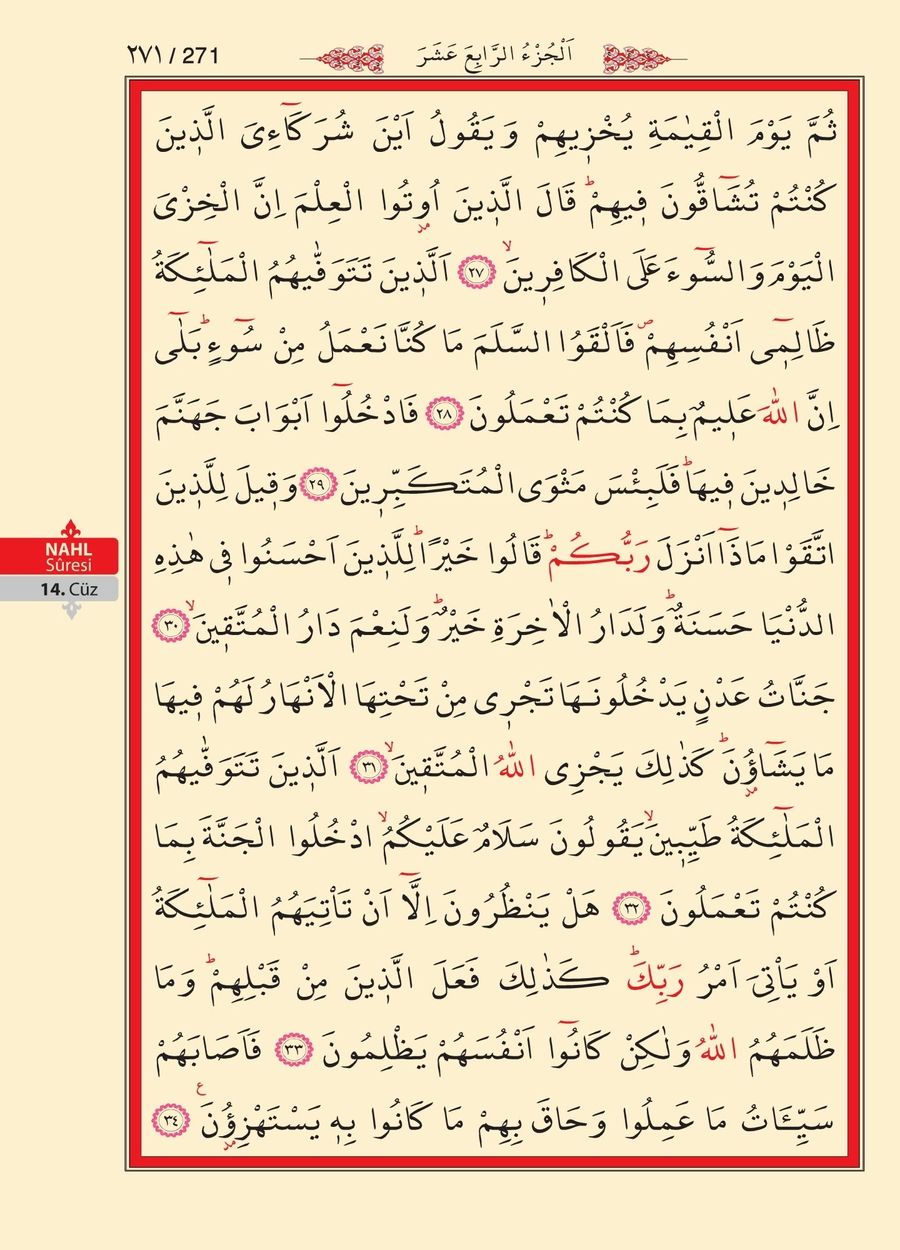 ٢٧١ / 271
اَلْجُزْءُ الرَّابِعَ عَشَرَ
ثُمَّ يَوْمَ الْقِيٰمَةِ يُخْزٖيهِمْ وَيَقُولُ اَيْنَ شُرَكَٓاءِىَ الَّذٖينَ
كُنْتُمْ تُشَٓاقُّونَ فٖيهِمْؕ قَالَ الَّذٖينَ اُو۫تُوا الْعِلْمَ اِنَّ الْخِزْىَ
الْيَوْمَ وَالسُّٓوءَ عَلَى الْكَافِرٖينَۙ ﴿٢٧﴾ اَلَّذٖينَ تَتَوَفّٰيهُمُ الْمَلٰٓئِكَةُ
ظَالِمٖٓى اَنْفُسِهِمْࣕ فَاَلْقَوُا السَّلَمَ مَا كُنَّا نَعْمَلُ مِنْ سُٓوءٍؕ بَلٰٓى
اِنَّ اللّٰهَ عَلٖيمٌ بِمَا كُنْتُمْ تَعْمَلُونَ ﴿٢٨﴾ فَادْخُلُٓوا اَبْوَابَ جَهَنَّمَ
خَالِدٖينَ فٖيهَاؕ فَلَبِئْسَ مَثْوَى الْمُتَكَبِّرٖينَ ﴿٢٩﴾ وَقٖيلَ لِلَّذٖينَ
اتَّقَوْا مَاذَٓا اَنْزَلَ رَبُّكُمْؕ قَالُوا خَيْرًاؕ لِلَّذٖينَ اَحْسَنُوا فٖى هٰذِهِ
الدُّنْيَا حَسَنَةٌؕ وَلَدَارُ الْاٰخِرَةِ خَيْرٌؕ وَلَنِعْمَ دَارُ الْمُتَّقٖينَۙ ﴿٣٠﴾
جَنَّاتُ عَدْنٍ يَدْخُلُونَهَا تَجْرٖى مِنْ تَحْتِهَا الْاَنْهَارُ لَهُمْ فٖيهَا
مَا يَشَٓاؤُ۫نَؕ كَذٰلِكَ يَجْزِى اللّٰهُ الْمُتَّقٖينَۙ ﴿٣١﴾ اَلَّذٖينَ تَتَوَفّٰيهُمُ
الْمَلٰٓئِكَةُ طَيِّبٖينَۙ يَقُولُونَ سَلَامٌ عَلَيْكُمُۙ ادْخُلُوا الْجَنَّةَ بِمَا
كُنْتُمْ تَعْمَلُونَ ﴿٣٢﴾ هَلْ يَنْظُرُونَ اِلَّٓا اَنْ تَاْتِيَهُمُ الْمَلٰٓئِكَةُ
اَوْ يَاْتِىَ اَمْرُ رَبِّكَؕ كَذٰلِكَ فَعَلَ الَّذٖينَ مِنْ قَبْلِهِمْؕ وَمَا
ظَلَمَهُمُ اللّٰهُ وَلٰكِنْ كَانُٓوا اَنْفُسَهُمْ يَظْلِمُونَ ﴿٣٣﴾ فَاَصَابَهُمْ
سَيِّـَٔاتُ مَا عَمِلُوا وَحَاقَ بِهِمْ مَا كَانُوا بِهٖ يَسْتَهْزِؤُ۫نَ ع ﴿٣٤﴾
NAHL
Sûresi
14. Cüz